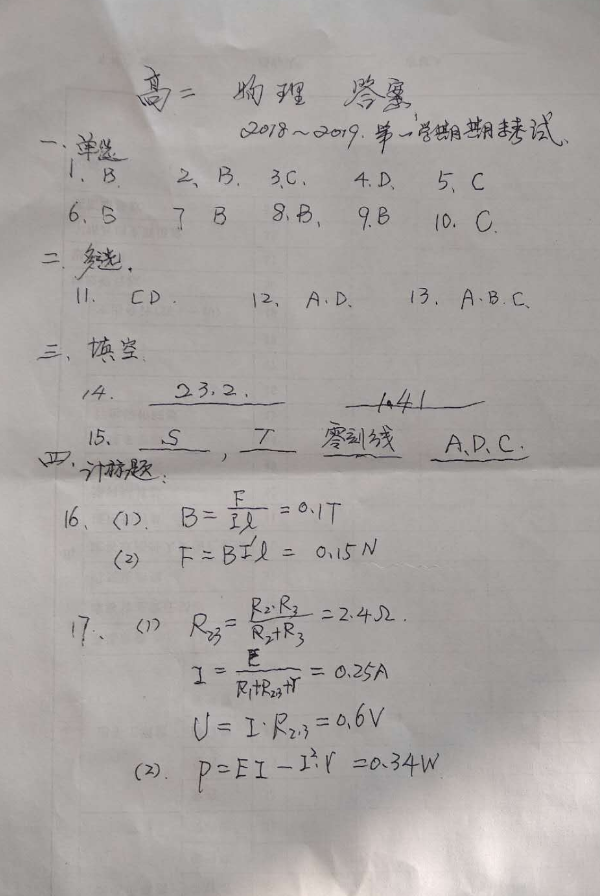 高二 物理 答案
2018～2019.第一学期期末考试
一、单选
1、B. 2、B. 3、C. 4.D. 5、C
6、B 7 B 8.B、 9.B 10. C.
二、多选.
11. CD. 12、A.D. 13、A.B.C.
三、填空
14. 23.2. 1.41
15. S , T 零刻线 A.D.C.
四、计标题:
16、(1). B=F/Il=0.1T
(2) F=BI'l= 0.15N
17、(1) R23=R2·R3/R2+R3=2.4Ω.
I=E/R1+R23+r=0.25A
U=I·R2.3=0.6V
(2). P=EI-I²·r=0.34W.